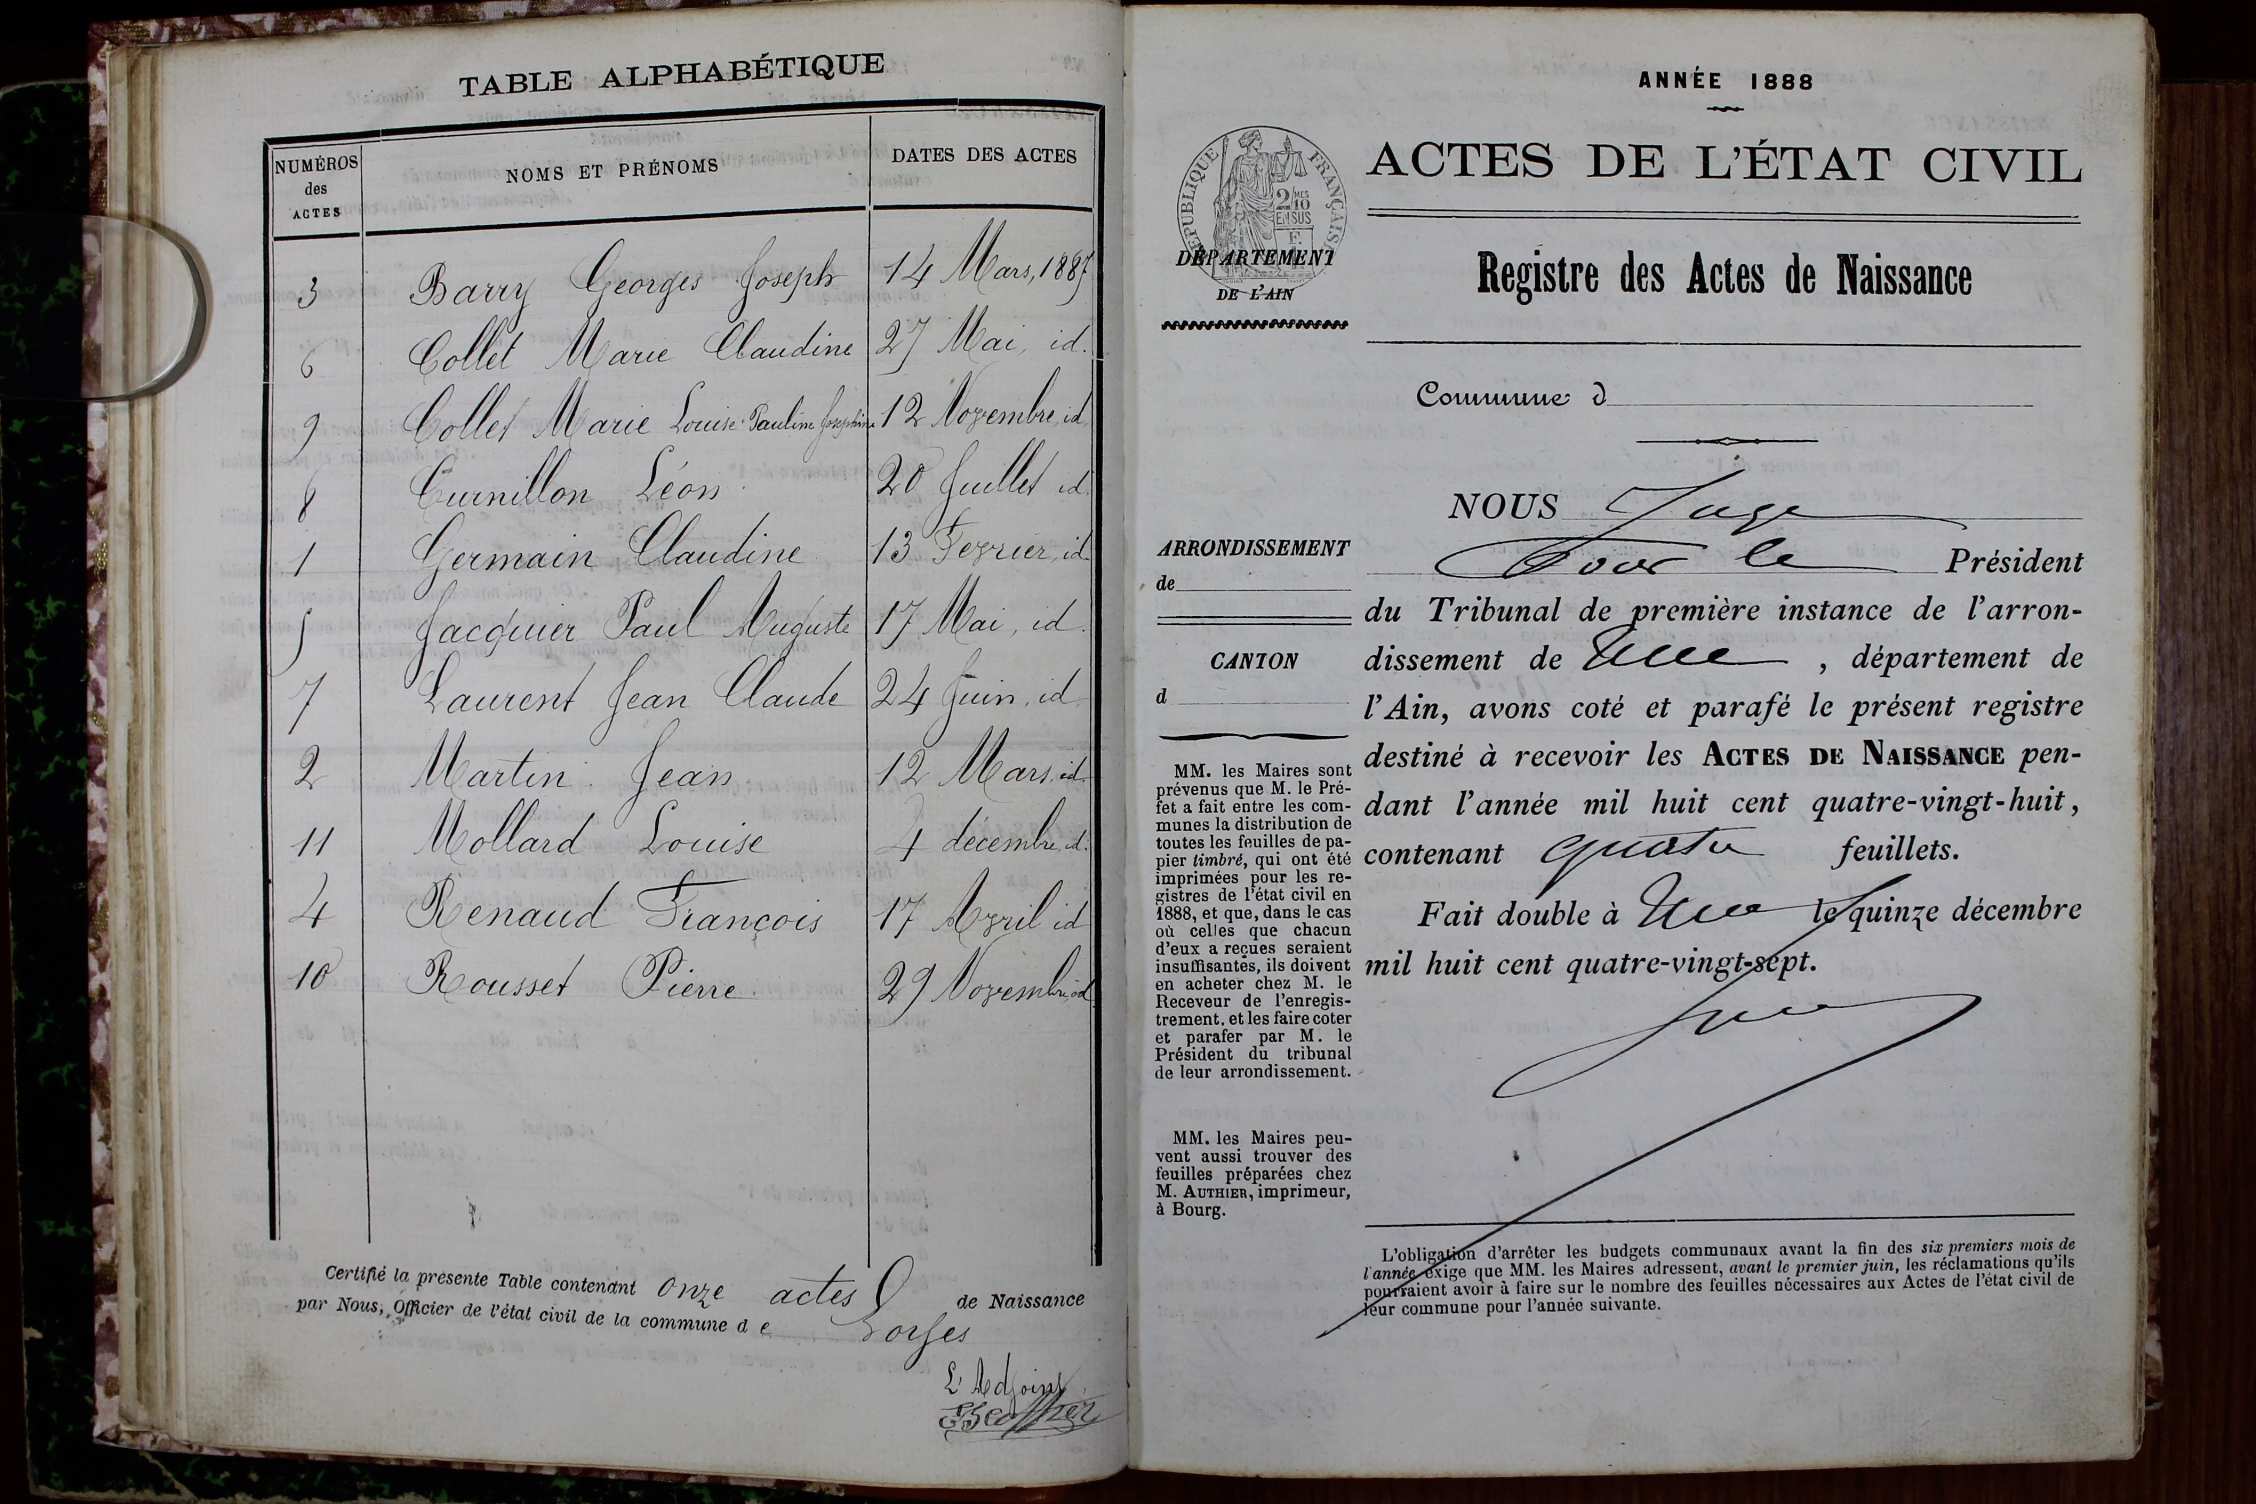 TABLE ALPHABÉTIQUE
NUMÉROS des ACTES
NOMS ET PRÉNOMS
DATES DES ACTES
3 Barry Georges Joseph 14 Mars, 1887
6 Collet Marie Claudine 27 Mai, id.
9 Collet Marie Louise Pauline Joséphine 12 Novembre, id.
8 Curnillon Léon 20 Juillet id.
1 Germain Claudine 13 Fevrier, id
5 Jacquier Paul Auguste 17 Mai, id.
7 Laurent Jean Claude 24 Juin, id
2 Martin Jean 12 Mars, id
11 Mollard Louise 4 décembre, id.
4 Renaud François 17 Avril id
10 Rousset Pierre 29 Novembre, id
Certifié la présente Table contenant onze actes de Naissance
par Nous, Officier de l'état civil de la commune d e
L'Adjoint
ANNÉE 1888
RÉPUBLIQUE FRANÇAISE
2/10 MES
EN SUS
ACTES DE L'ÉTAT CIVIL
DÉPARTEMENT
DE L'AIN
Registre des Actes de Naissance
Commune d
ARRONDISSEMENT
de
CANTON
d
MM. les Maires sont
prévenus que M. le Pré-
fet a fait entre les com-
munes la distribution de
toutes les feuilles de pa-
pier timbré, qui ont été
imprimées pour les re-
gistres de l'état civil en
1888, et que, dans le cas
où celles que chacun
d'eux a reçues seraient
insuffisantes, ils doivent
en acheter chez M. le
Receveur de l'enregis-
trement, et les faire coter
et parafer par M. le
Président du tribunal
de leur arrondissement.
MM. les Maires peu-
vent aussi trouver des
feuilles préparées chez
M. AUTHIER, imprimeur,
à Bourg.
NOUS Juge
Pour le Président
du Tribunal de première instance de l'arron-
dissement de , département de
l'Ain, avons coté et parafé le présent registre
destiné à recevoir les ACTES DE NAISSANCE pen-
dant l'année mil huit cent quatre-vingt-huit,
contenant quatre feuillets.
Fait double à le quinze décembre
mil huit cent quatre-vingt-sept.
L'obligation d'arrêter les budgets communaux avant la fin des six premiers mois de
l'année exige que MM. les Maires adressent, avant le premier juin, les réclamations qu'ils
pourraient avoir à faire sur le nombre des feuilles nécessaires aux Actes de l'état civil de
leur commune pour l'année suivante.